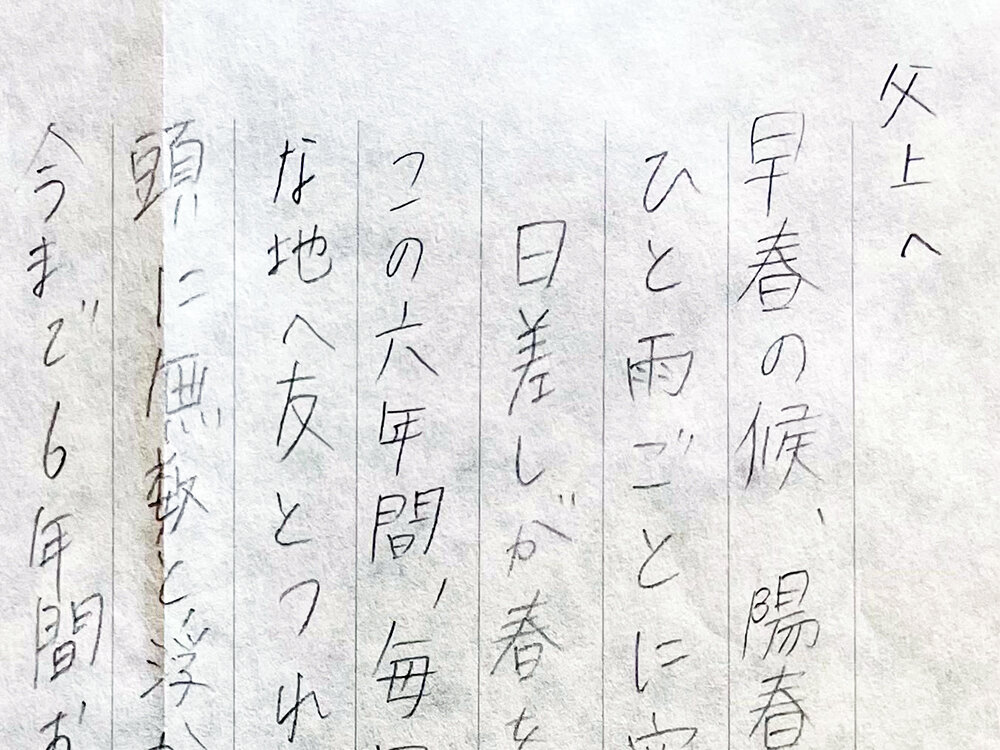 父上へ
早春の候、陽春
ひと雨ごとに
日差しが春を
この六年間、毎
な地へ友とつれ
頭に無数と浮か
今まで6年間お